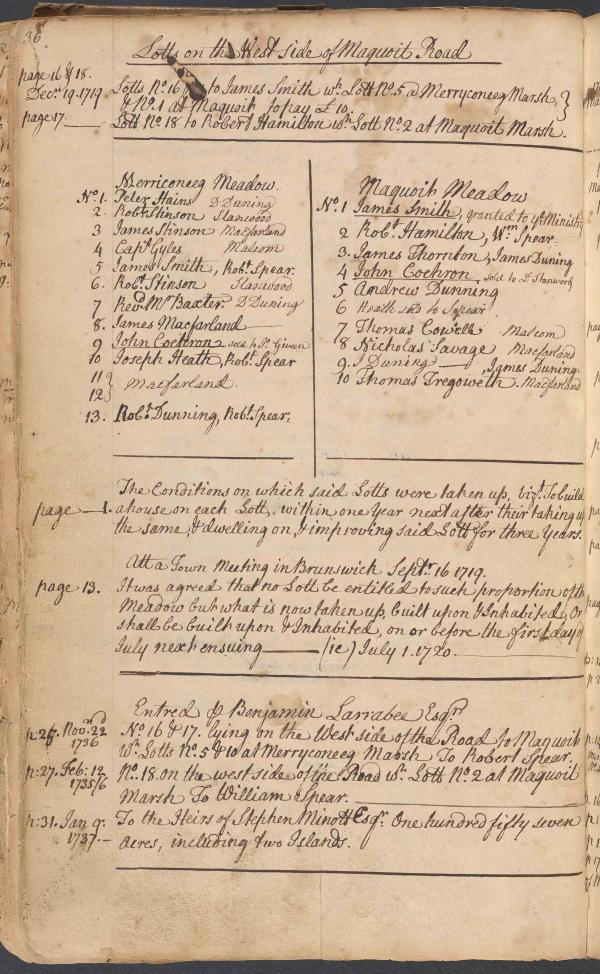 36
Lotts on the West side of Maquoit Road
page 16 & 18.
Decr. 19. 1719
Lotts No. 16 to James Smith wt. Lott No. 5 @ Merryconeeg Marsh,
& No. 1 at Maquoit to pay £ 10.
page 17
Lott No 18 to Robert Hamilton wh. Lott No. 2 at Maquoit Marsh.
Merriconeeg Meadow.
No. 1. Peter Hains D Duning
2. Robt. Stinson Stanwood
3 James Stinson Macfarland
4 Capt. Gyles Malcom
5 James Smith, Robt. Spear.
6. Robt. Stinson Stanwood
7 Revd. Mr Baxter. D Duning
8. James Macfarland
9 John Cochron sold to Jn. Given
10 Joseph Heath, Robt. Spear
11
12 } Macfarland.
13. Robt. Dunning, Robt. Spear.
Maquoit Meadow
No. 1 James Smith, granted to ye. Ministry
2 Robt. Hamilton, Wm Spear.
3. James Thornton, James Duning
4 John Cochron sold to D Stanwood
5 Andrew Dunning
6 Heath sold to Spear
7 Thomas Cowell Malcom
8 Nicholas Savage Macfarland
9. J Duning James Duning.
10 Thomas Tregoweth. Macfarland
The Conditions on which said Lotts were taken up, vizt. To build
page 1. a house on each Lott, within one Year next after their taking up
the same, & dwelling on, & improving said Lott for three Years.
Att a Town Meeting in Brunswick Septr. 16 1719.
page 13. It was agreed that no Lott be entitled to such proportion of the
Meadow but what is now taken up, built upon & Inhabited, Or
shall be built upon & Inhabited, on or before the first day of
July next ensuing (ie) July 1. 1720.
Entred Benjamin Larrabee Esqr.
p: 25. Novr. 22nd 1736 No 16 & 17. lying on the West side of the Road to Maquoit
wh. Lotts No. 5 & 10 at Merryconeeg Marsh To Robert Spear.
p: 27. Feb: 12 1735/6 No. 18. on the west side of the Road wh. Lott No. 2 at Maquoit
Marsh To William Spear.
p: 31. Jan 9. 1737. To the Heirs of Stephen Minott Esqr. One hundred fifty seven
acres, including two Islands.